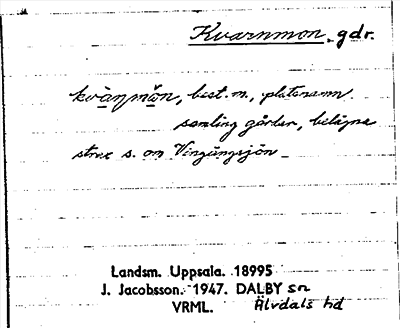 Kvarnmon, gdr.
kvänmǒn, best. m., platsnamn.
samling gårdar, belägna
strax s. om Vingängsjön
Landsm. Uppsala. 18995
J. Jacobsson. 1947. DALBY sn
VRML. Älvdals hd